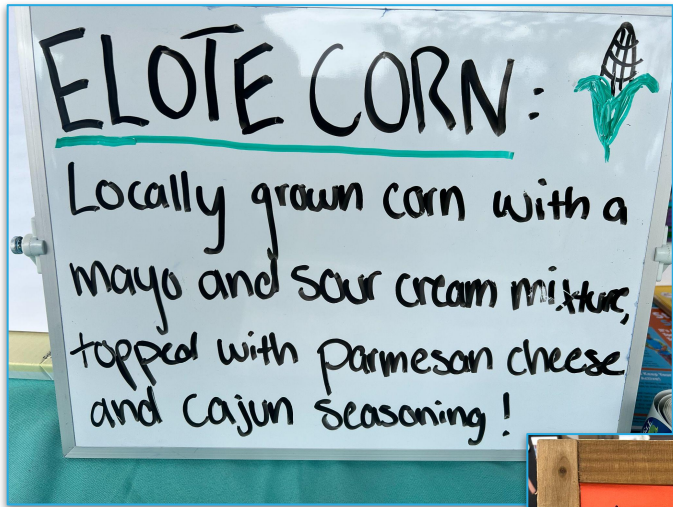 ELOTE CORN:
Locally grown corn with a
mayo and sour cream mixture,
topped with parmesan cheese
and Cajun seasoning!